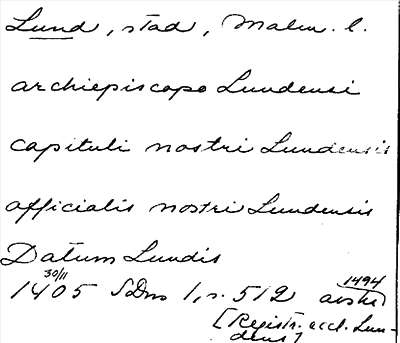 Lund, stad, Malm. l.
archiepiscopo Lundensi
capituli nostri Lundensis
officialis nostri Lundensis
Datum Lundis
30/11 1494
1405 SDns 1, s. 512 avskr
[Registr. eccl. Lun-
densis]